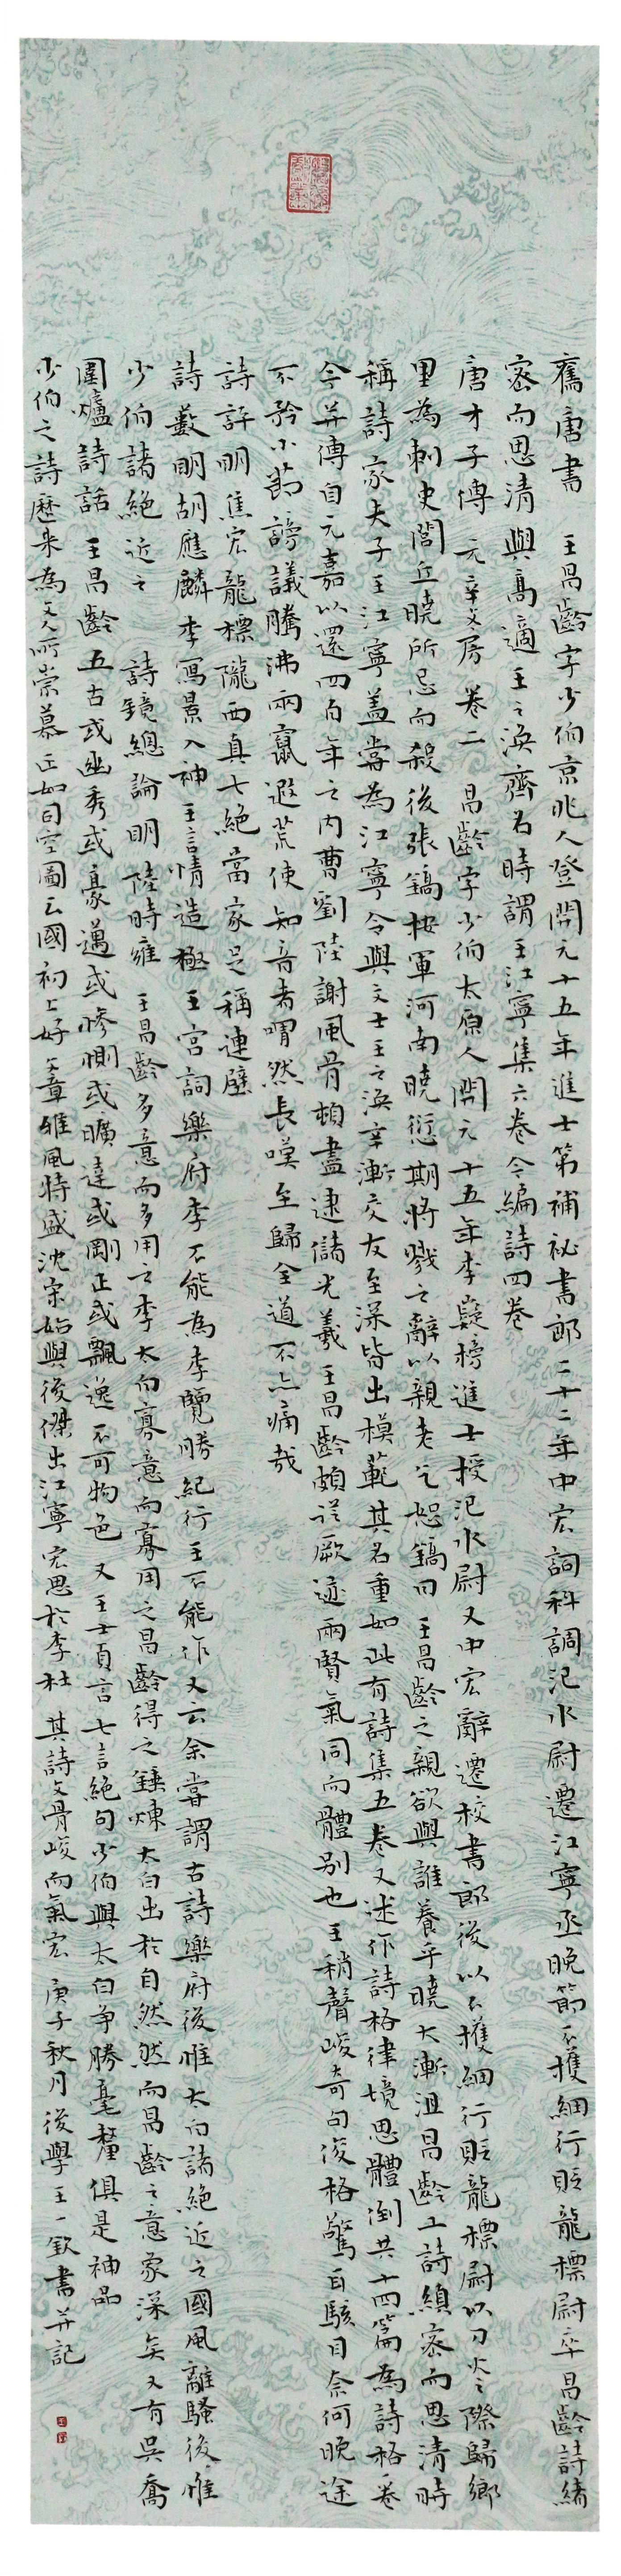 舊唐書　王昌齡字少伯京兆人登開元十五年進士第補祕書郎二十二年中宏詞科調汜水尉遷江寧丞晚節不擭細行貶龍標尉卒昌齡詩緒
密而思清與高適王之渙齊名時謂王江寧集六卷今編詩四卷
唐才子傳　元辛文房　卷二　昌齡字少伯太原人開元十五年李嶷榜進士授汜水尉又中宏辭遷校書郎後以不擭細行貶龍標尉以刀火之際歸鄉
里為刺史閭丘曉所忌而殺後張鎬按軍河南曉愆期將戮之辭以親老乞恕鎬曰王昌齡之親欲與誰養乎曉大漸沮昌齡工詩縝密而思清時
稱詩家夫子王江寧蓋嘗為江寧令與文士王之渙辛漸交友至深皆出模範其名重如此有詩集五卷又述作詩格律境思體例共十四篇為詩格一卷
今並傳自元嘉以還四百年之內曹劉陸謝風骨頓盡逮儲光羲王昌齡頗從厥迹兩賢氣同而體別也王稍聲峻奇句俊格驚耳駭目奈何晚途
不矜小節謗議騰沸兩竄遐荒使知音者喟然長嘆至歸全道不亦痛哉
詩評明焦宏龍標隴西真七絕當家足稱連璧
詩藪明胡應麟李寫景入神王言情造極王宮詞樂府李不能為李覽勝紀行王不能作又云余嘗謂古詩樂府後惟太白諸絕近之國風離騷後惟
少伯諸絕近之　詩鏡總論明陸時雍　王昌齡多意而多用之李太白寡意而寡用之昌齡得之錘煉太白出於自然然而昌齡之意象深矣又有吳喬
圍爐詩話　王昌齡五古或幽秀或豪邁或慘惻或曠達或剛正或飄逸不可物色　又王士禎言七言絕句少伯與太白爭勝毫釐俱是神品
少伯之詩歷來為文人所崇慕正如司空圖云國初上好文章雅風特盛沈宋始興後傑出江寧宏思於李杜　其詩文骨峻而氣宏　庚子秋月後學王一欽書並記